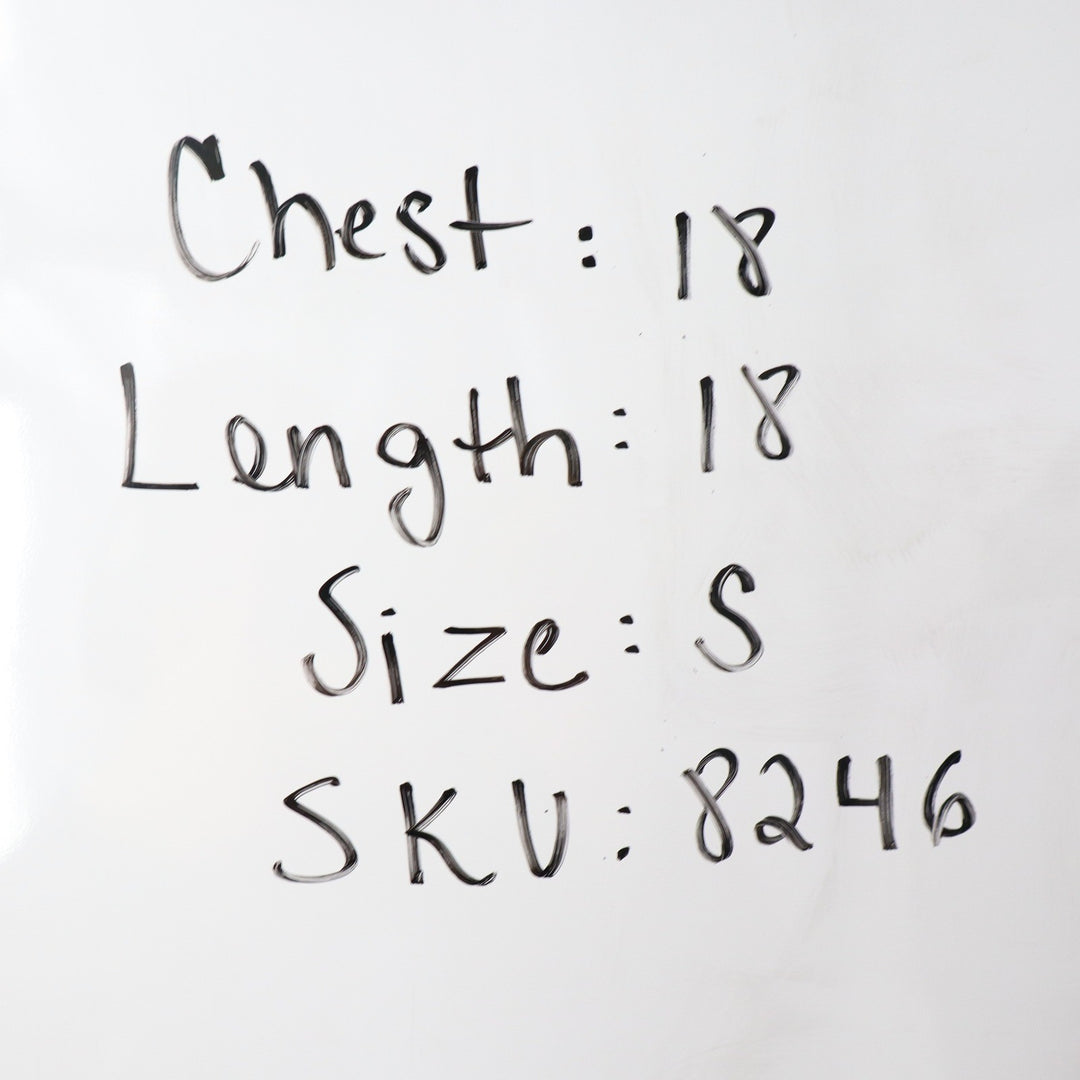 Chest: 18
Length: 18
Size: S
SKU: 8246